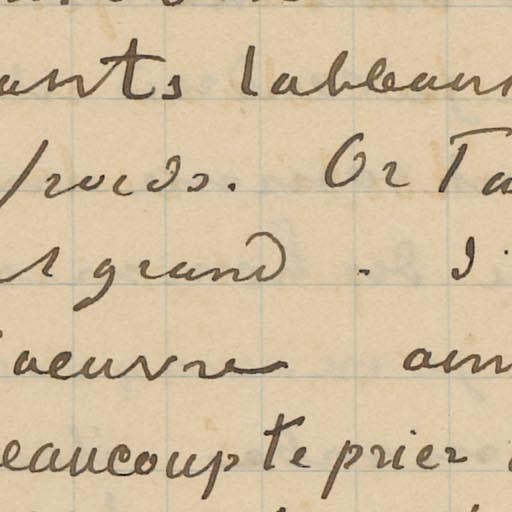 ants tableaux
froids. Or Ta
et grand. d'
l'oeuvre ain
beaucoup te prier